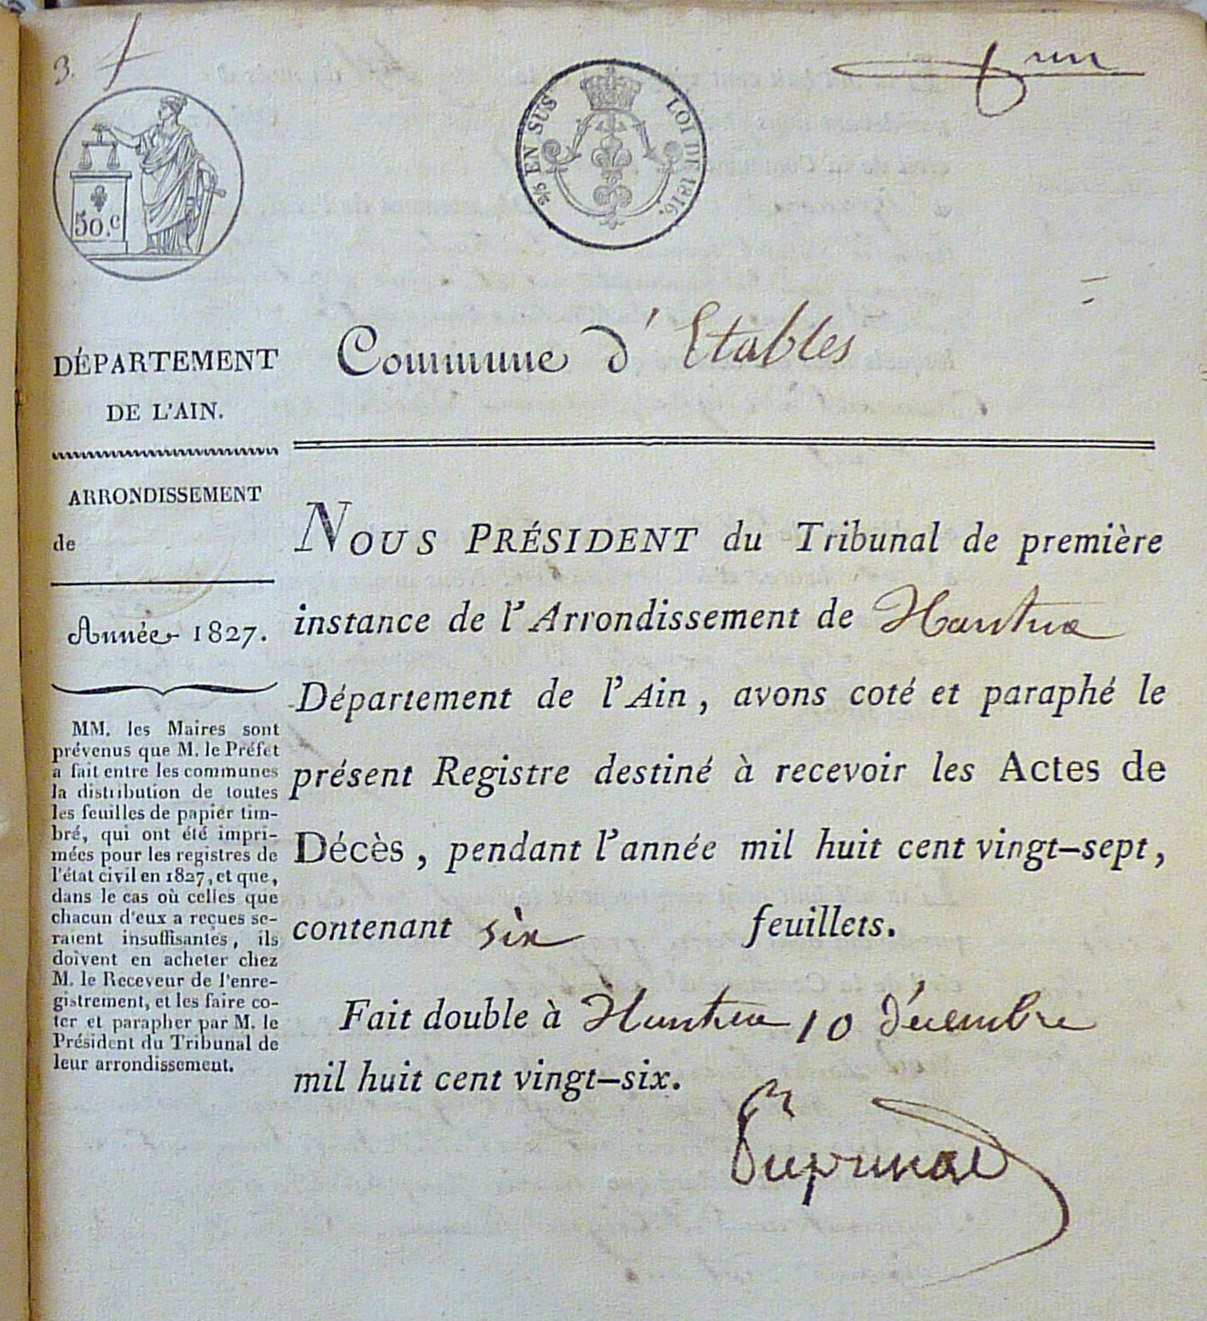 3.
un
50.c
2/5 EN SUS
LOI DE 1816.
DÉPARTEMENT
DE L'AIN.
ARRONDISSEMENT
de
Année 1827.
MM. les Maires sont
prévenus que M. le Préfet
a fait entre les communes
la distribution de toutes
les feuilles de papier tim-
bré, qui ont été impri-
mées pour les registres de
l'état civil en 1827, et que,
dans le cas où celles que
chacun d'eux a reçues se-
raient insuffisantes, ils
doivent en acheter chez
M. le Receveur de l'enre-
gistrement, et les faire co-
ter et parapher par M. le
Président du Tribunal de
leur arrondissement.
Commune d'Etables
NOUS PRÉSIDENT du Tribunal de première
instance de l'Arrondissement de Nantua
Département de l'Ain, avons coté et paraphé le
présent Registre destiné à recevoir les Actes de
Décès, pendant l'année mil huit cent vingt-sept,
contenant six feuillets.
Fait double à Nantua 10 décembre
mil huit cent vingt-six.